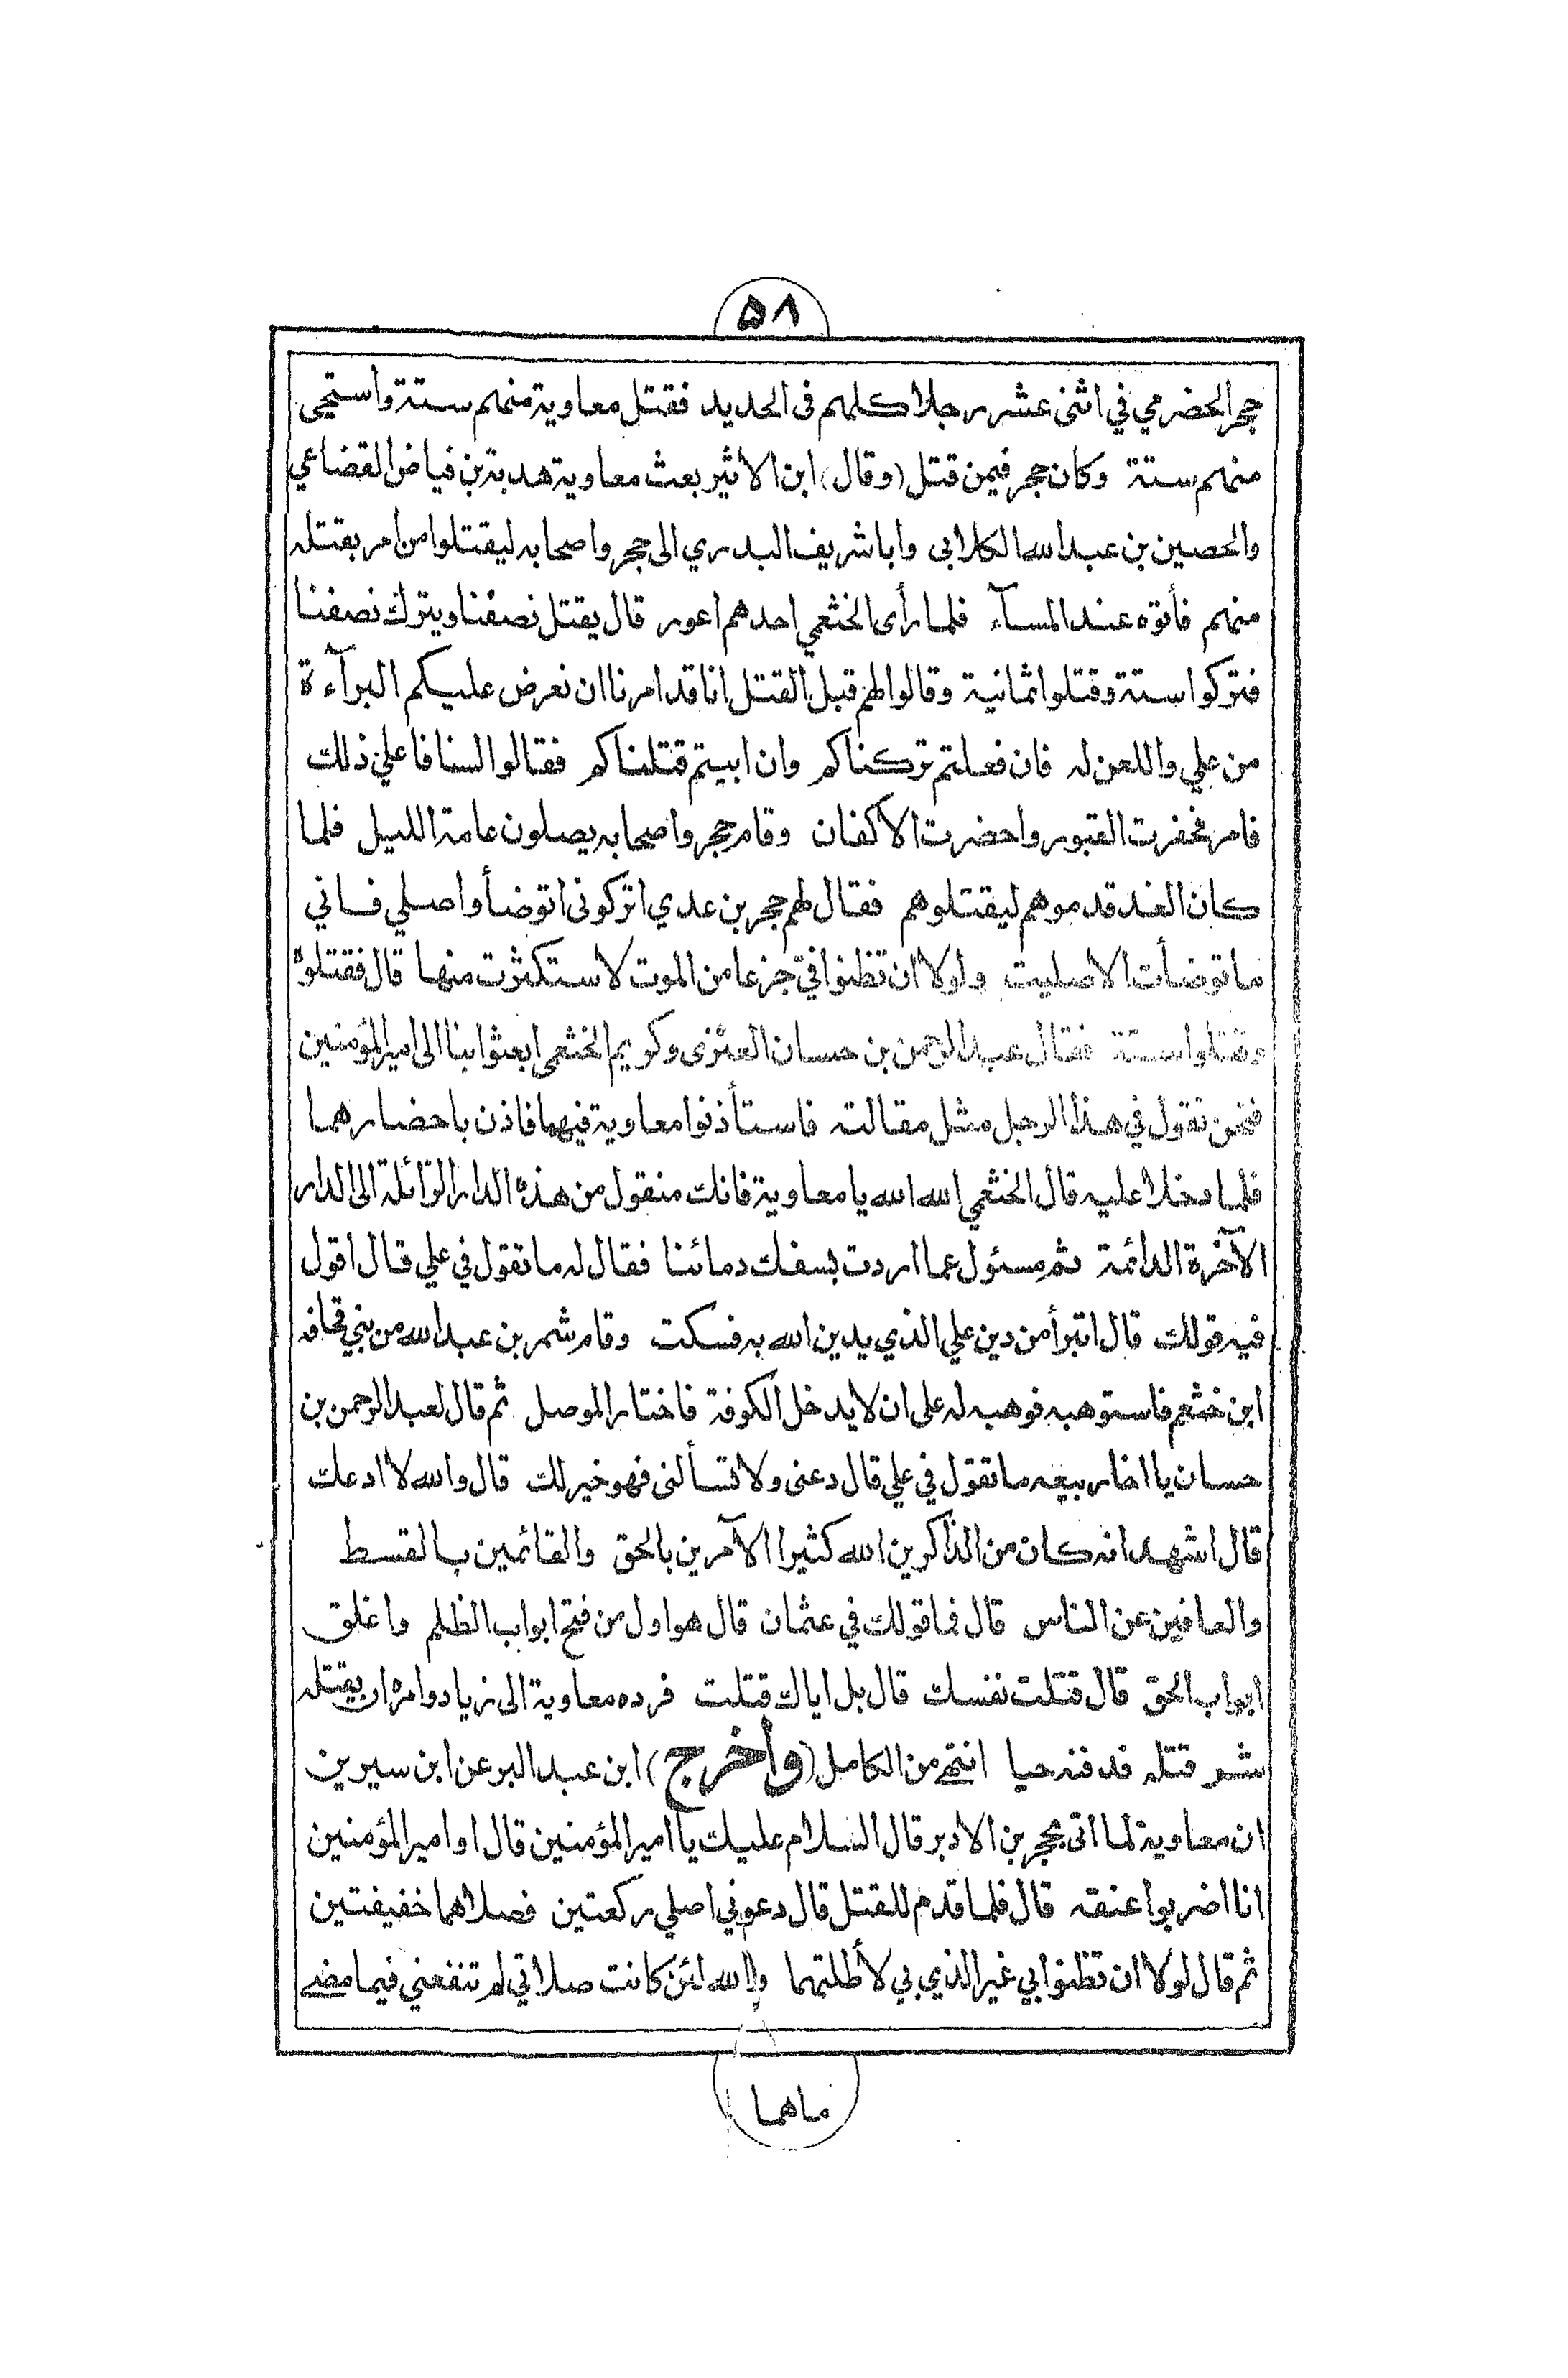 ٥٨
حجر الحضرمي في اثنى عشر رجلا كلهم فى الحديد فقتل معاوية منهم ستة واستحيى
منهم ستة وكان حجر فيمن قتل (وقال) ابن الاثير بعث معاوية هدبة بن فياض القضاعي
والحصين بن عبد الله الكلابى وابا شريف البدري الى حجر واصحابه ليقتلوا من امر بقتله
منهم فأتوه عند المسآء فلما رأى الخثعمي احدهم اعور قال يقتل نصفنا ويترك نصفنا
فتركوا ستة وقتلوا ثمانية وقالوا لهم قبل القتل انا قد امرنا ان نعرض عليكم البرآءة
من علي واللعن له فان فعلتم تركناكم وان ابيتم قتلناكم فقالوا لسنا فاعلي ذلك
فامر فحفرت القبور واحضرت الاكفان وقام حجر واصحابه يصلون عامة الليل فلما
كان الغد قدموهم ليقتلوهم فقال لهم حجر بن عدي اتركونى اتوضأ واصلي فاني
ما توضأت الا صليت ولولا ان تظنوا فيّ جزعا من الموت لاستكثرت منها قال فقتلوه
وقتلوا ستة فقال عبد الرحمن بن حسان العنزى وكريم الخثعمي ابعثوا بنا الى امير المؤمنين
فنحن نقول في هذا الرجل مثل مقالته فاستأذنوا معاوية فيهما فاذن باحضارهما
فلما دخلا عليه قال الخثعمي الله الله يا معاوية فانك منقول من هذه الدار الزائلة الى الدار
الآخرة الدائمة ثم مسئول عما اردت بسفك دمائنا فقال له ما تقول في علي قال اقول
فيه قولك قال اتبرأ من دين علي الذي يدين الله به فسكت وقام شمر بن عبد الله من بني قحافه
ابن خثعم فاستوهبه فوهبه له على ان لا يدخل الكوفة فاختار الموصل ثم قال لعبد الرحمن بن
حسان يا اخا ربيعه ما تقول في علي قال دعنى ولا تسألنى فهو خير لك قال والله لا ادعك
قال اشهد انه كان من الذاكرين الله كثيرا الآمرين بالحق والقائمين بالقسط
والعافين عن الناس قال فما قولك في عثمان قال هو اول من فتح ابواب الظلم واغلق
ابواب الحق قال قتلت نفسك قال بل اياك قتلت فرده معاوية الى زياد وامره ان يقتله
شر قتله فدفنه حيا انتهى من الكامل (وأخرج) ابن عبد البر عن ابن سيرين
ان معاوية لما اتى بحجر بن الادبر قال السلام عليك يا امير المؤمنين قال او امير المؤمنين
انا اضربوا عنقه قال فلما قدم للقتل قال دعوني اصلي ركعتين فصلاهما خفيفتين
ثم قال لولا ان تظنوا بي غير الذي بي لأطلتهما والله لئن كانت صلاتي لم تنفعني فيما مضى
ماهما